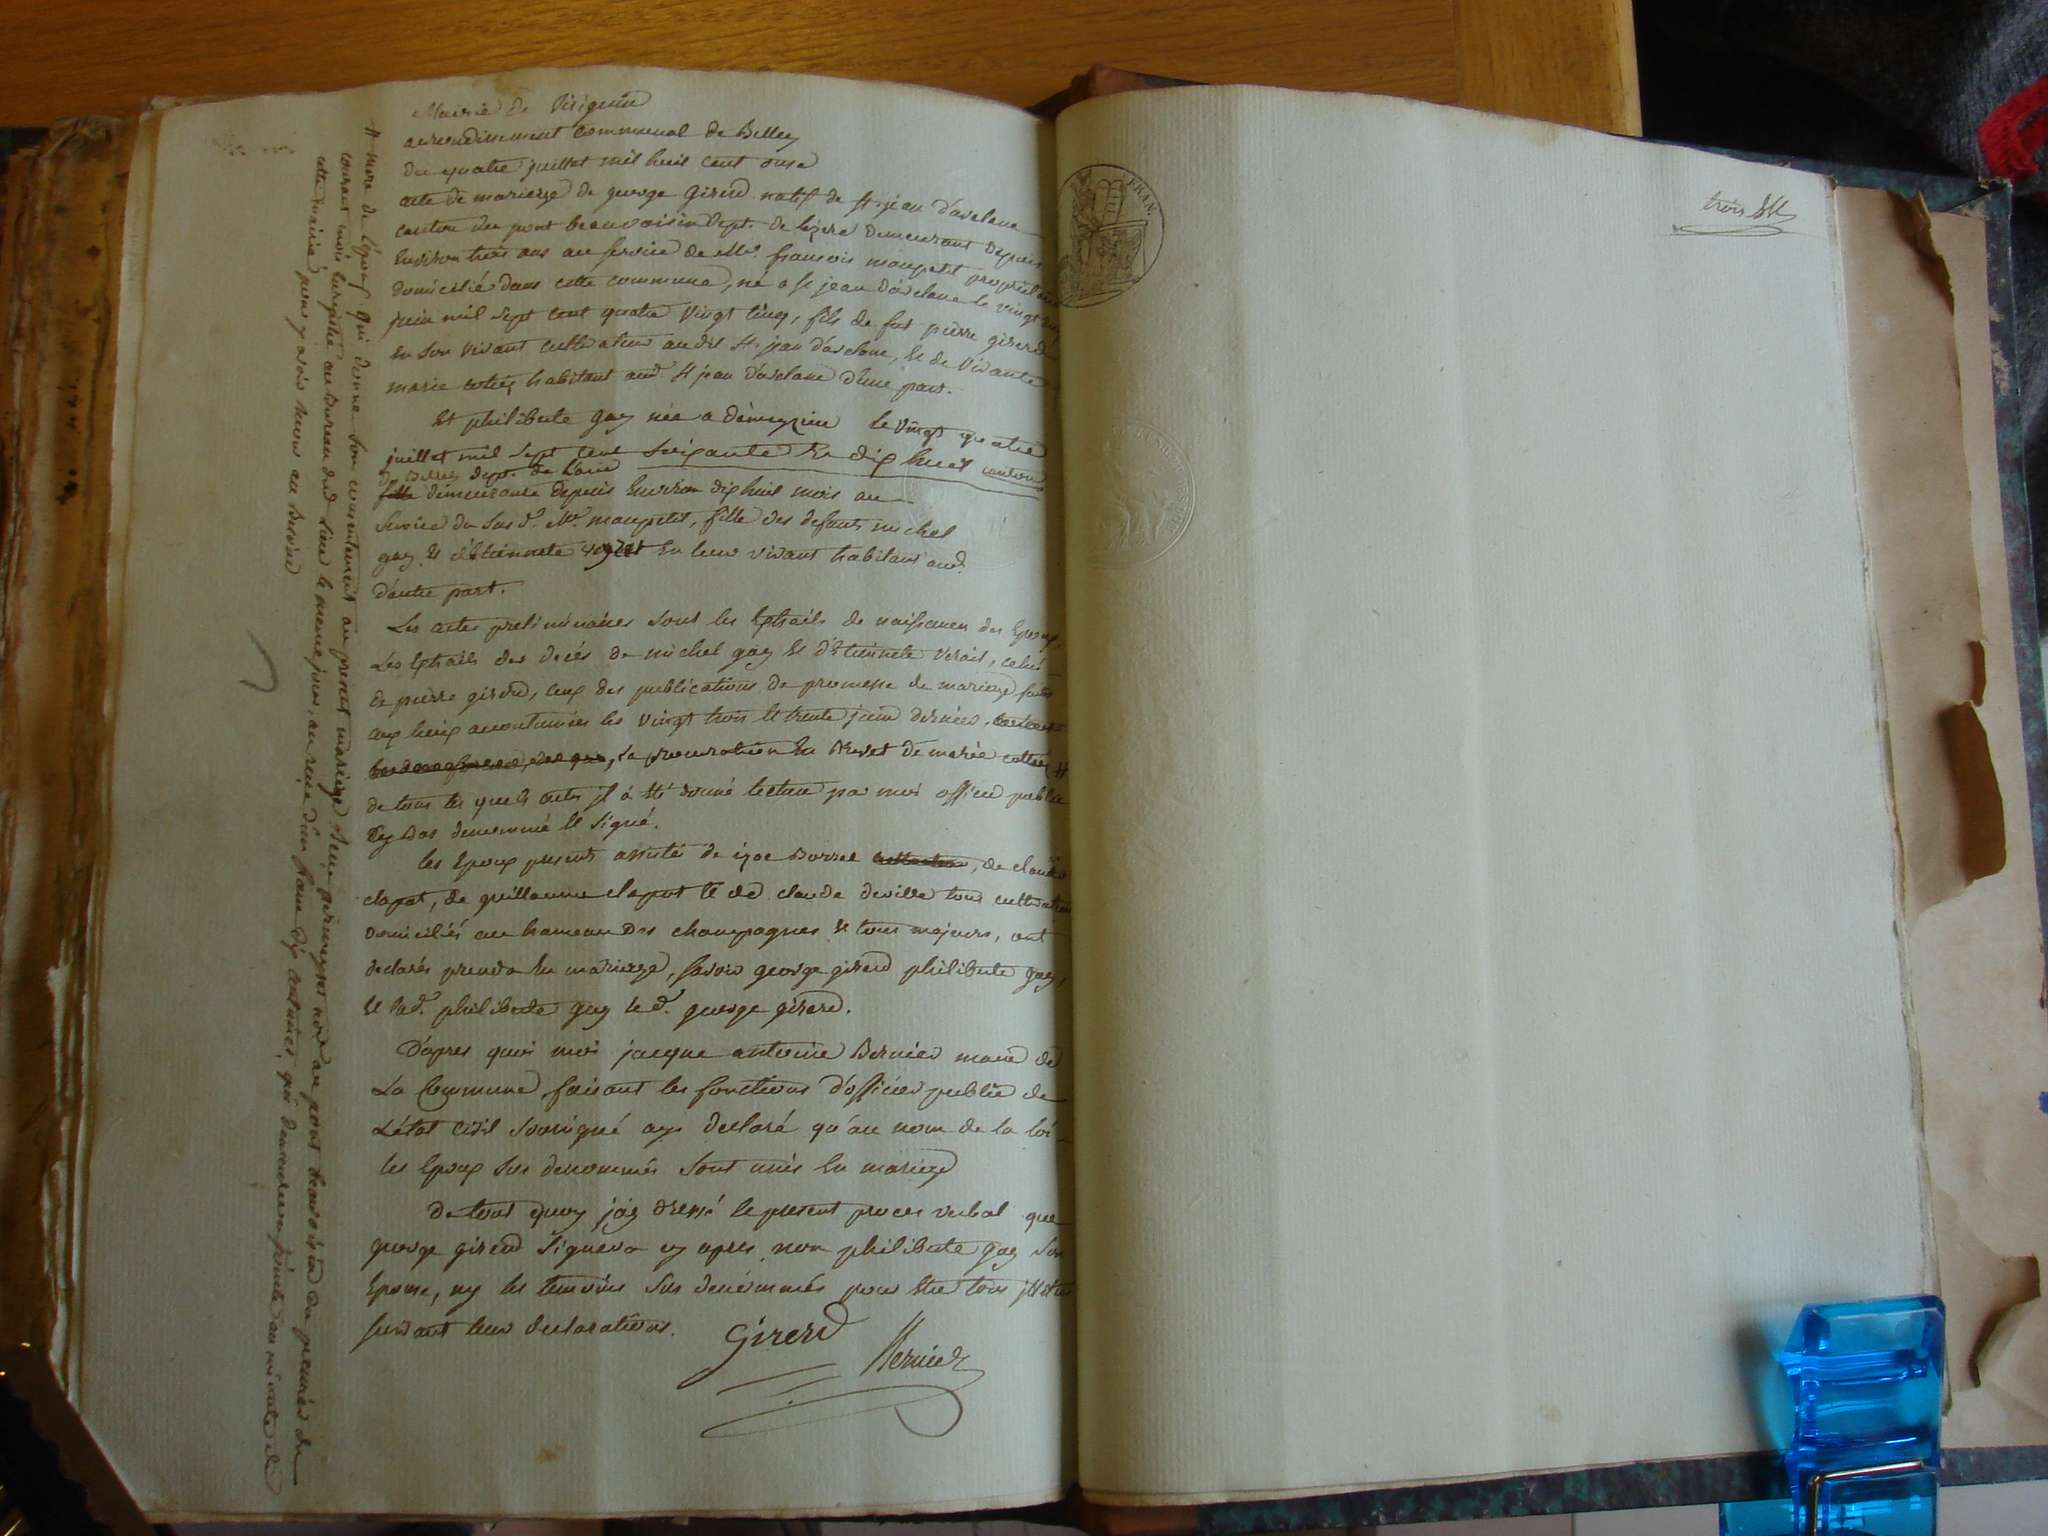 Mairie de Virignin
arrondissement communal de Belley
du quatre juillet mil huit cent onze
acte de mariage de george Girerd natif de st. jean d'avelane
canton du pont beauvoisin dept. de lizere demeurant depuis
Environ trois ans au service de Mr. francois maupetit propriétaire
domicilié dans cette commune, né a st jean d'avelane le vingt
juin mil sept cent quatre vingt cinq, fils de fut pierre girerd
en son vivant cultivateur audit st. jean d'avelane, et de vivante
marie cotiez habitant aud. st jean d'avelane d'une part.
Et philiberte gay née a le vingt quatre
juillet mil sept cent soixante et dix huit canton
de Belley dept. de l'ain
fille demeurante depuis Environ dix huit mois au
service du susd. Mr. maupetit, fille des defunts michel
gay et d'Etiennete en leur vivant habitans aud.
d'autre part.
Les actes preliminaires sont les Extraits de naissances des Epoux,
Les Extraits des décés de michel gay et d'Etiennete, celui
de pierre girerd, ceux des publications de promesse de mariage faites
aux lieux accoutumés les vingt trois et trente juin dernier,
la procuration en Brevet de marie cottiez #
de tous les quels actes il a été donné lecture par moi officier public
cy bas denommé et signé.
les Epoux presents assisté de Borrel, de claude
clapot, de guillaume clapot et de claude deville tous cultivateurs
domiciliés au hameau des champagnes et tous majeurs, ont
declarés prendre en mariage, savoir george girerd philiberte gay,
et lad. philiberte gay le d. george girerd.
D'apres quoi moi jacque antoine Bernier maire de
La Commune faisant les fonctions d'officier public de
L'état civil soussigné ay declaré qu'au nom de la loi
les Epoux sus denommés sont unis en mariage
De tout quoy j'ay dressé le present proces verbal que
george girerd signera cy apres non philiberte gay son
Epouse, ny les temoins sus denommés pour etre tous illetrés
suivant leur declarations.
Girerd
Bernier
# mere de l'époux qui donne son consentement au present mariage Reçu par notaire au pont beauvoisin du premier du
courant mois Enregistré au Bureau dud. Lieu le meme jour, au reçu d'un franc dix centimes, qui demeurera jointe au minute de
cette mairie pour y avoir recours au Besoin
FRAN.
trois